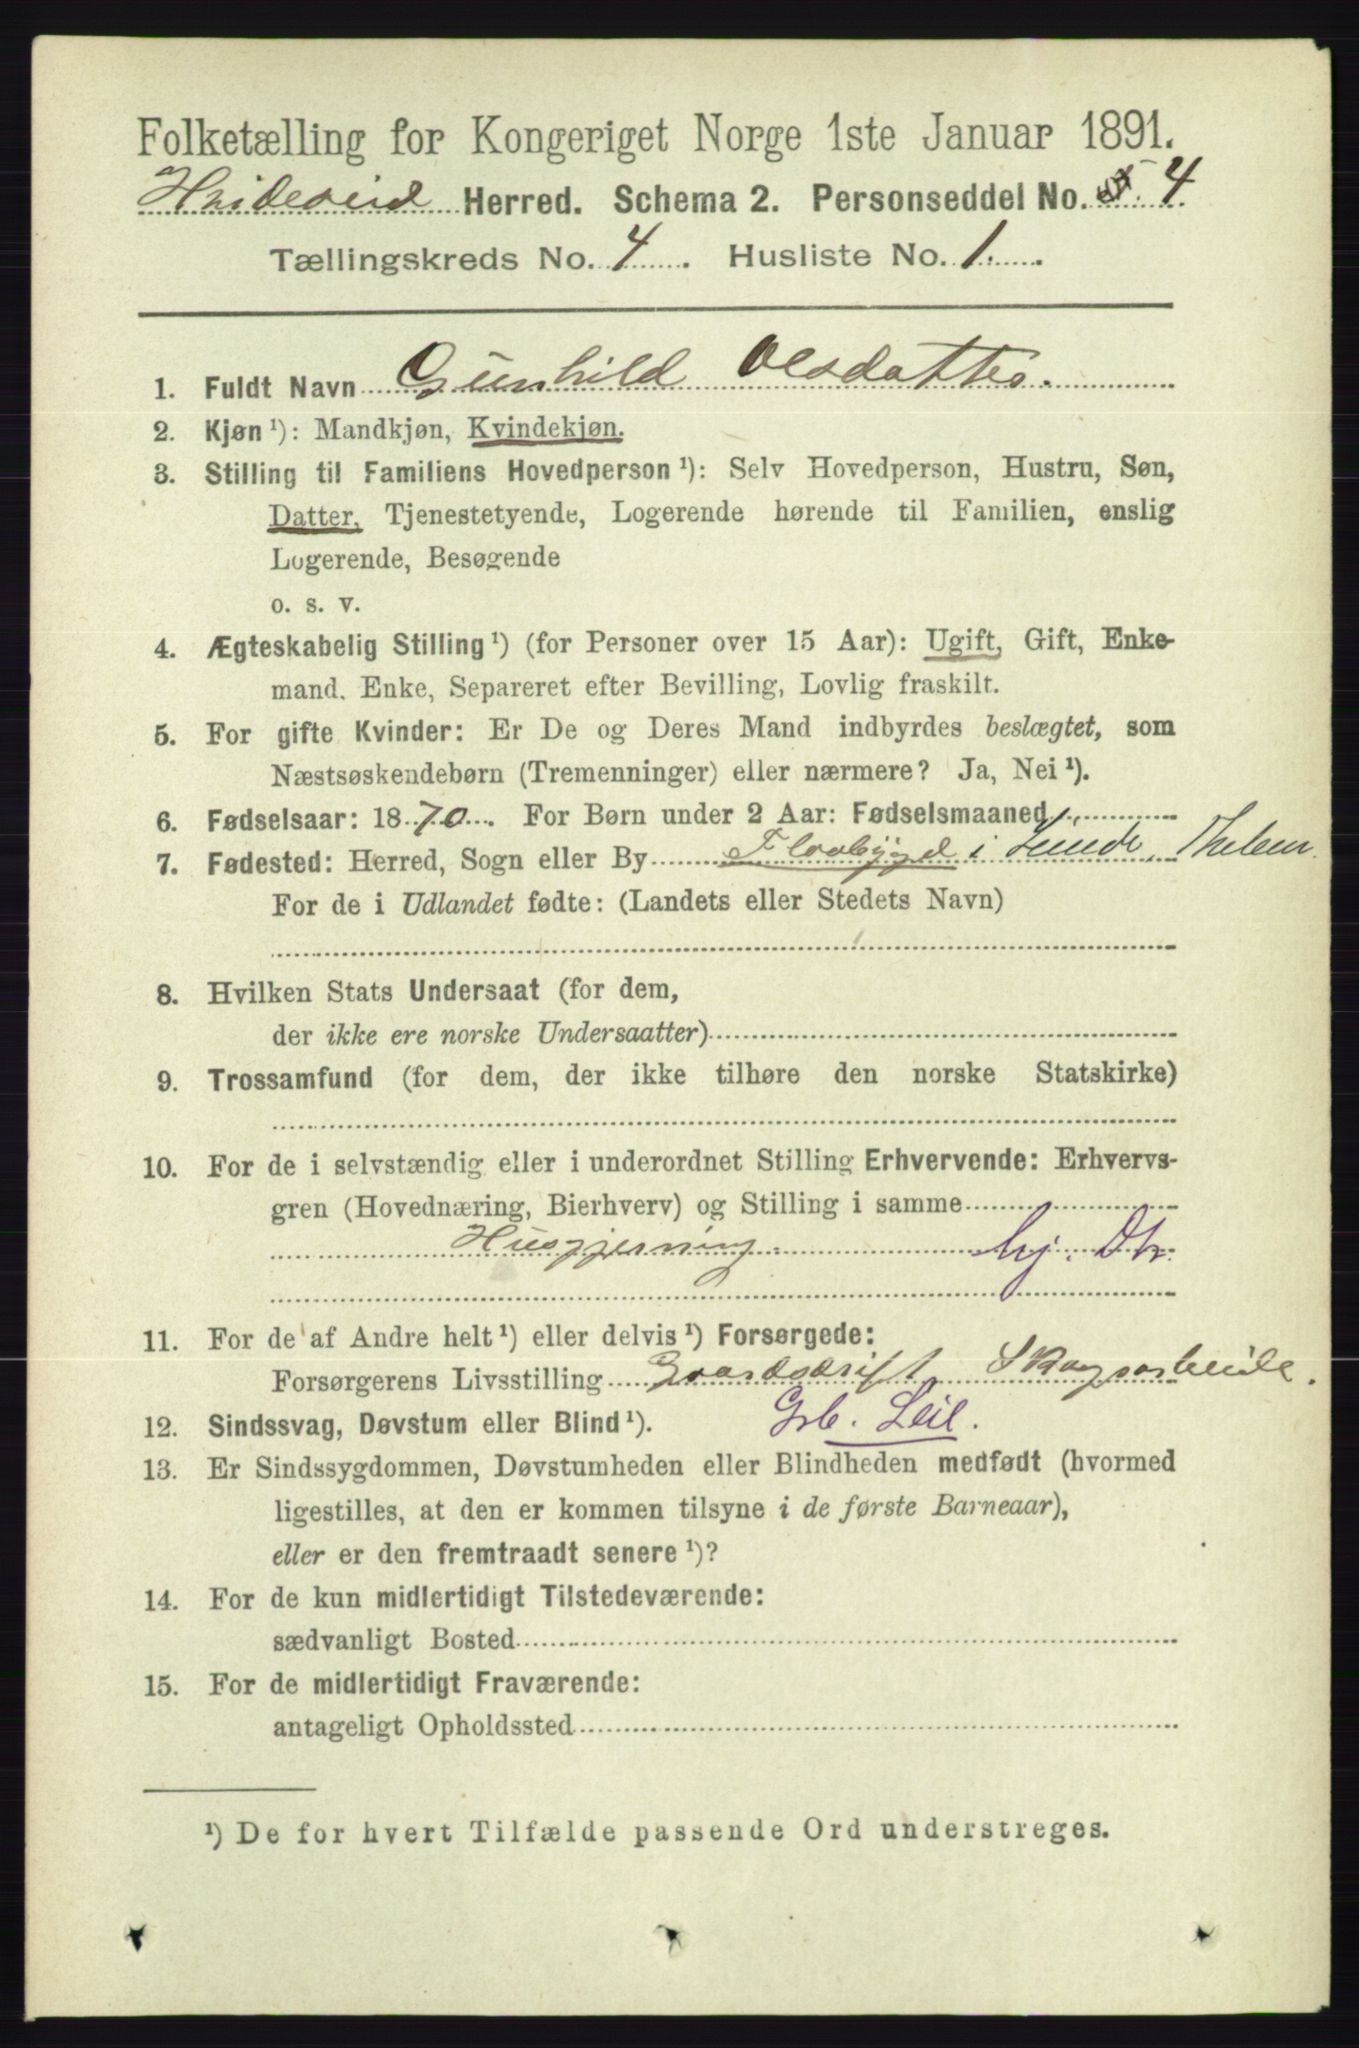 Folketælling for Kongeriget Norge 1ste Januar 1891.
Hvideseid Herred. Schema 2. Personseddel No. 4
Tællingskreds No. 4. Husliste No. 1.
1. Fuldt Navn Gunhild Olsdatter.
2. Kjøn¹): Mandkjøn, Kvindekjøn.
3. Stilling til Familiens Hovedperson¹): Selv Hovedperson, Hustru, Søn,
Datter, Tjenestetyende, Logerende hørende til Familien, enslig
Logerende, Besøgende
o. s. v.
4. Ægteskabelig Stilling¹) (for Personer over 15 Aar): Ugift, Gift, Enke-
mand, Enke, Separeret efter Bevilling, Lovlig fraskilt.
5. For gifte Kvinder: Er De og Deres Mand indbyrdes beslægtet, som
Næstsøskendebørn (Tremenninger) eller nærmere? Ja, Nei¹).
6. Fødselsaar: 1870. For Børn under 2 Aar: Fødselsmaaned
7. Fødested: Herred, Sogn eller By Flaabygd i Lunde, Thelem.
For de i Udlandet fødte: (Landets eller Stedets Navn)
8. Hvilken Stats Undersaat (for dem,
der ikke ere norske Undersaatter)
9. Trossamfund (for dem, der ikke tilhøre den norske Statskirke)
10. For de i selvstændig eller i underordnet Stilling Erhvervende: Erhvervs-
gren (Hovednæring, Bierhverv) og Stilling i samme
Husgjerning. hj. Dtr.
11. For de af Andre helt¹) eller delvis¹) Forsørgede:
Forsørgerens Livsstilling Gaardsdrift Skogsarbeide.
12. Sindssvag, Døvstum eller Blind¹). Grb. Leil.
13. Er Sindssygdommen, Døvstumheden eller Blindheden medfødt (hvormed
ligestilles, at den er kommen tilsyne i de første Barneaar),
eller er den fremtraadt senere¹)?
14. For de kun midlertidigt Tilstedeværende:
sædvanligt Bosted
15. For de midlertidigt Fraværende:
antageligt Opholdssted
¹) De for hvert Tilfælde passende Ord understreges.